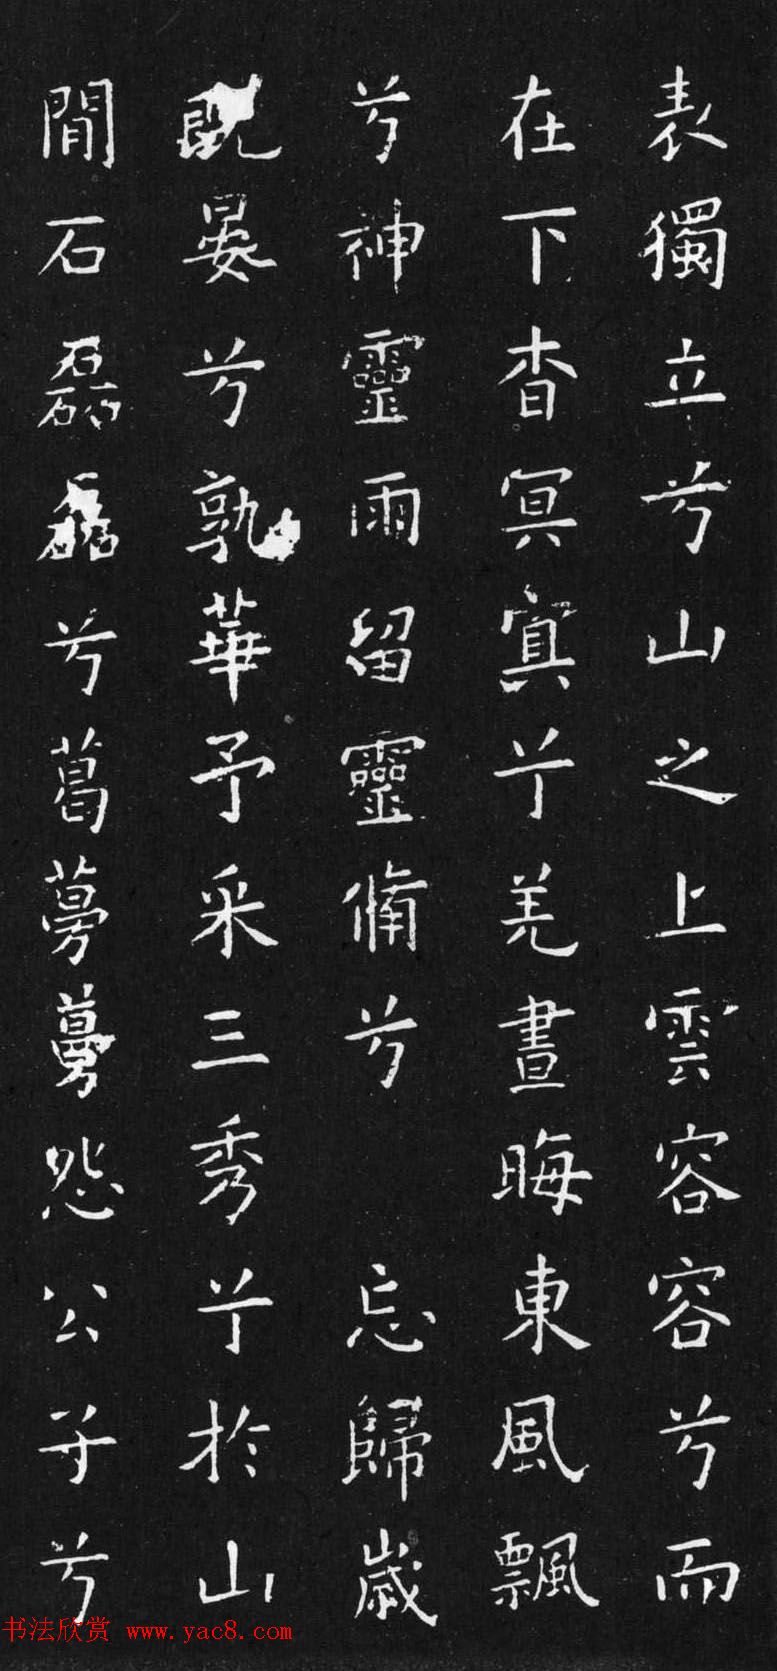 表獨立兮山之上雲容容兮而
在下杳冥冥兮羌晝晦東風飄
兮神靈雨留靈脩兮忘歸歲
既晏兮孰華予采三秀兮於山
間石磊磊兮葛蔓蔓怨公子兮
书法欣赏 www.yac8.com